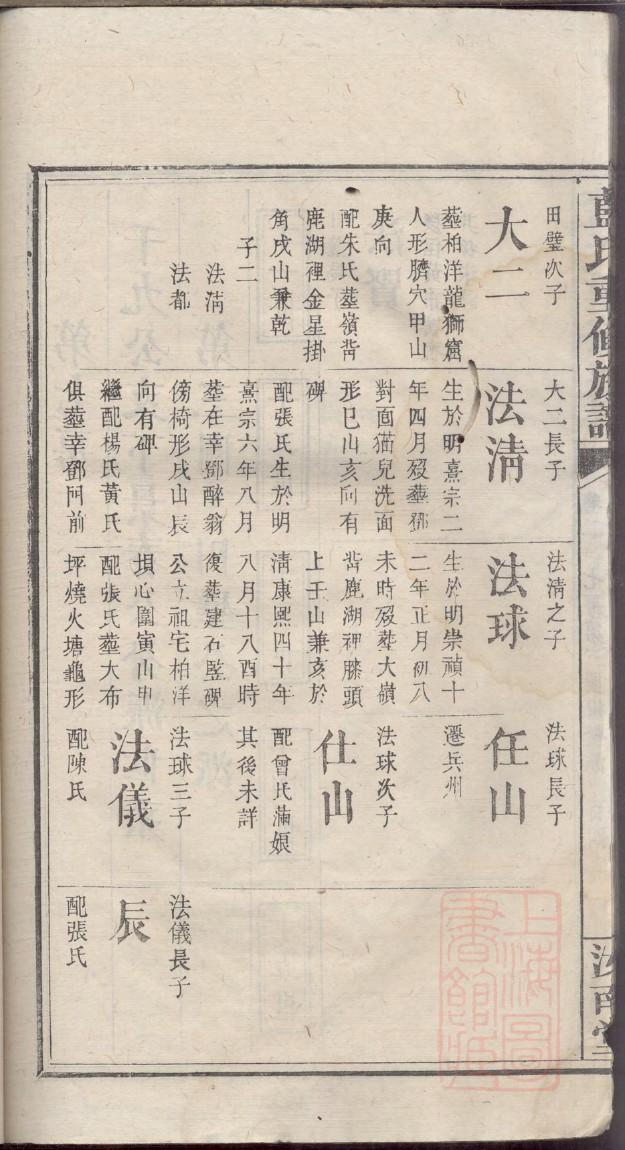 藍氏重修族譜
汝南堂
田璧次子
大二
塟柏洋龍獅窟
人形臍穴甲山
庚向
配朱氏塟嶺背
鹿湖裡金星掛
角戌山兼乾
子二
法淸
法都
大二長子
法清
生於明熹宗二
年四月歿塟鄧
對面猫兒洗面
形巳山亥向有
碑
配張氏生於明
熹宗六年八月
塟在幸鄧醉翁
傍椅形戌山辰
向有碑
繼配楊氏黄氏
俱塟幸鄧門前
法清之子
法球
生於明崇禎十
二年正月初八
未時歿塟大嶺
背鹿湖裡膝頭
上壬山兼亥於
淸康熙四十年
八月十八酉時
復塟建石監碑
公立祖宅柏洋
垻心圍寅山申
配張氏塟大布
坪燒火塘龜形
法球長子
任山
遷兵州
法球次子
仕山
配曾氏滿娘
其後未詳
法球三子
法儀
配陳氏
法儀長子
辰
配張氏
上海圖
書館藏